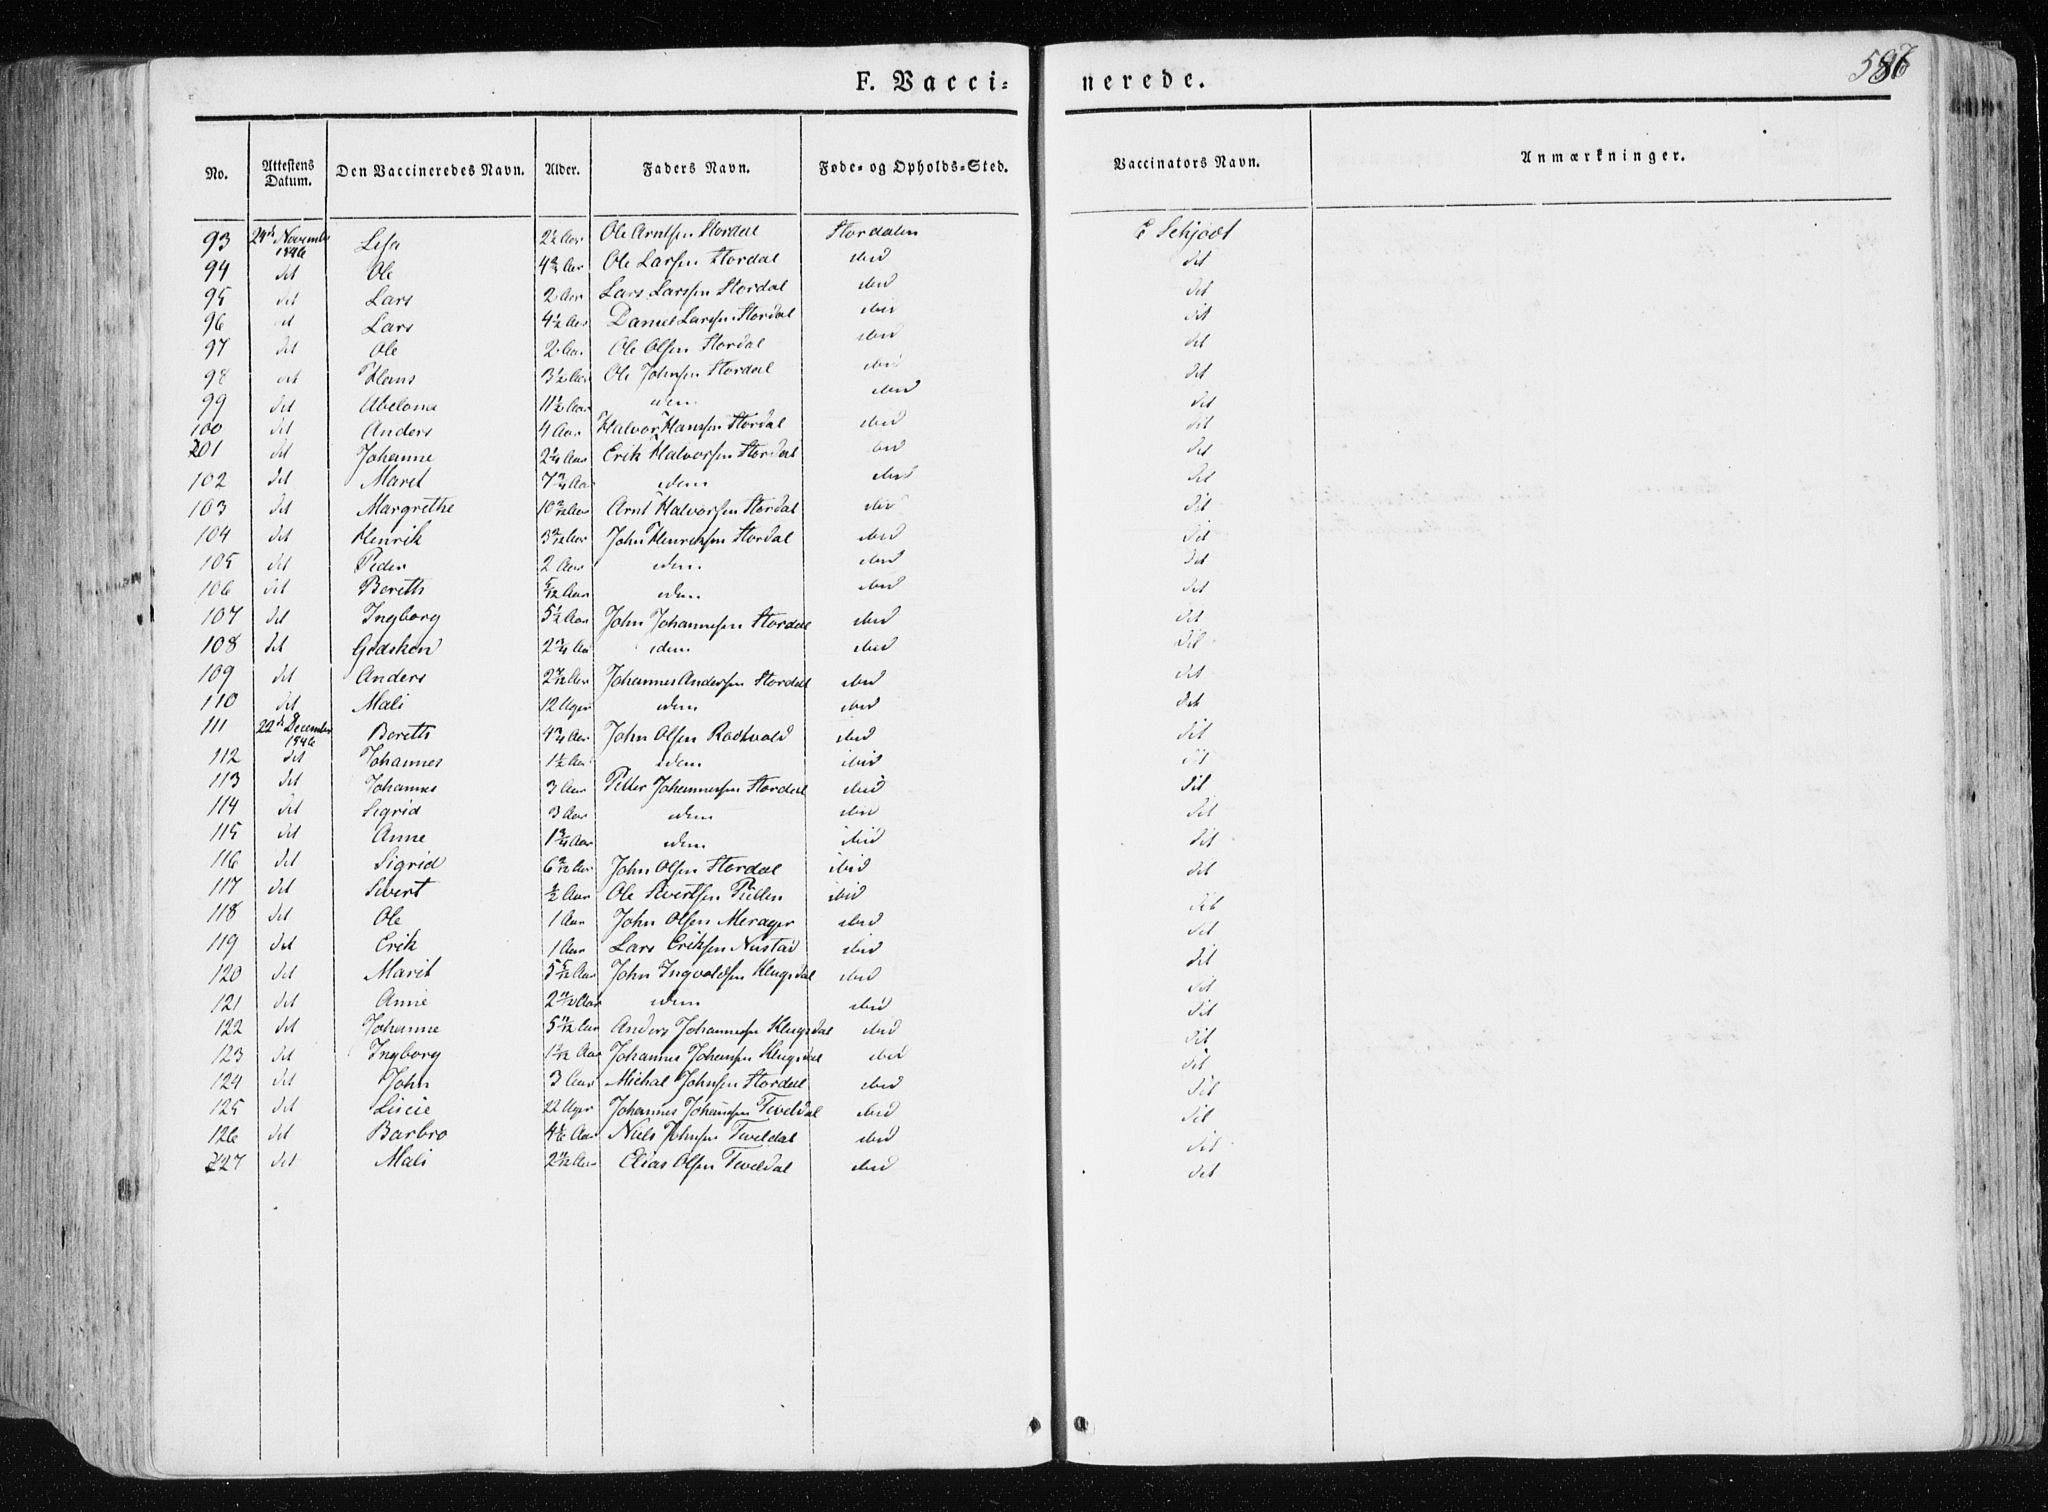 586
F. Vaccinerede.
No. Attestens Datum. Den Vaccineredes Navn. Alder. Faders Navn. Føde- og Opholds-Sted. Vaccinators Navn. Anmærkninger.
93 24de November 1846 Lisa 2½ Aar Ole Arntsen Stordal Stordalen E Schjødt
94 dit Ole 4 Aar Ole Larsen Stordal ibid dit
95 dit Lars 2 Aar Lars Larssen Stordal ibid dit
96 dit Lars 4½ Aar Daniel Larssen Stordal ibid dit
97 dit Ole 2 Aar Ole Olsen Stordal ibid dit
98 dit Hans 3½ Aar Ole Johnsen Stordal ibid dit
99 dit Abelona 11½ Aar idem ibid dit
100 dit Anders 4 Aar Halvor Hanssen Stordal ibid dit
101 dit Johanne 2¼ Aar Erik Halvorsen Stordal ibid dit
102 dit Maret 7¾ Aar idem ibid dit
103 dit Margrethe 10 Aar Arnt Halvorsen Stordal ibid dit
104 dit Henrik 3 Aar John Henriksen Stordal ibid dit
105 dit Peder 2 Aar idem ibid dit
106 dit Bereth 5/12 Aar idem ibid dit
107 dit Ingborg 5½ Aar John Johannesen Stordal ibid dit
108 dit Gidsken 2¾ Aar idem ibid dit
109 dit Anders 2 Aar Johannes Andersen Stordal ibid dit
110 dit Mali 12 Uger idem ibid dit
111 22de December 1846 Bereth 4¾ Aar John Olsen Rodtvold ibid dit
112 dit Johannes 1½ Aar idem ibid dit
113 dit Johannes 3 Aar Petter Johannessen Stordal ibid dit
114 dit Sigrid 3 Aar idem ibid dit
115 dit Anne 1¾ Aar idem ibid dit
116 dit Sigrid 6 Aar John Olsen Stordal ibid dit
117 dit Sivert ½ Aar Ole Sivertsen ibid dit
118 dit Ole 1 Aar John Olsen Merager ibid dit
119 dit Erik 1 Aar Lars Eriksen Nustad ibid dit
120 dit Marit 5 5/12 Aar John Ingvaldsen Klugsdal ibid dit
121 dit Anne 2 11/12 Aar idem ibid dit
122 dit Johanne 5 Aar Anders Johannessen Klugsdal ibid dit
123 dit Ingborg 1 Aar Johannes Johansen Klugsdal ibid dit
124 dit John 3 Aar Michal Johnsen Stordal ibid dit
125 dit Liscie 22 Uger Johannes Johansen Teveldal ibid dit
126 dit Barbro 4 Aar Niels Johnsen Teveldal ibid dit
127 dit Mali 2 Aar Elias Olsen Teveldal ibid dit